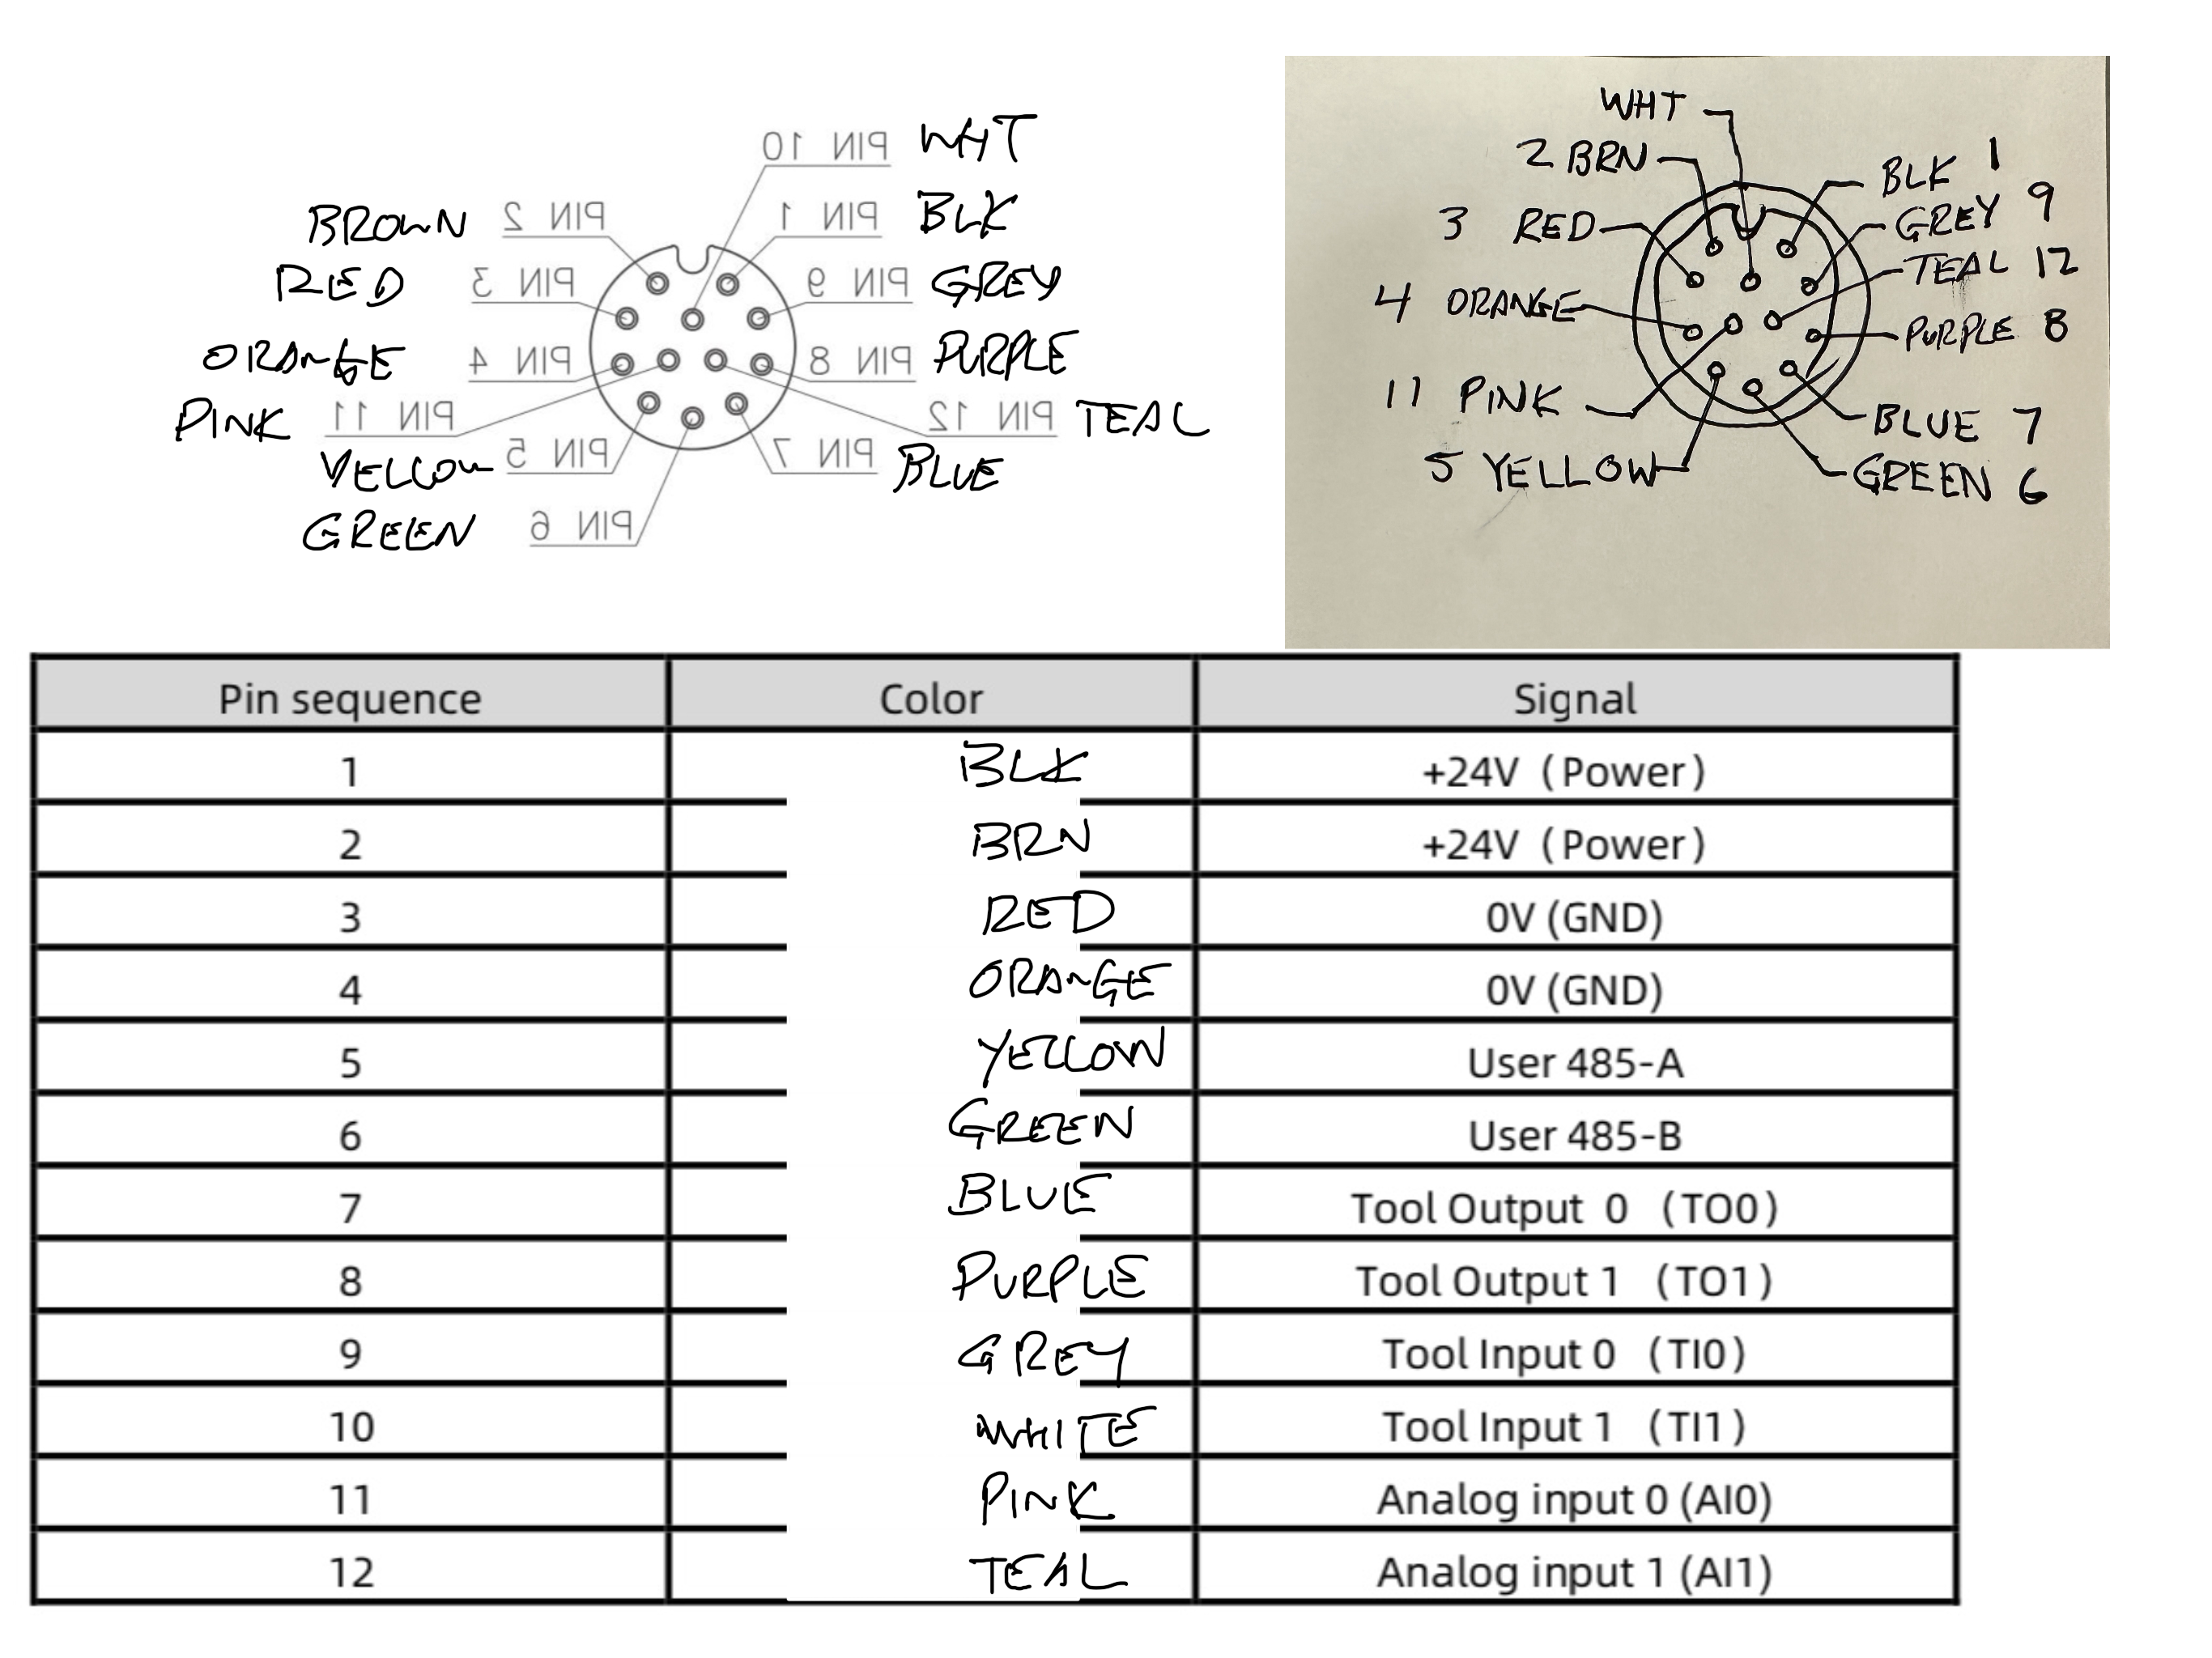 PIN 10 WHT
BROWN PIN 2 PIN 1 BLK
RED PIN 3 PIN 9 GREY
ORANGE PIN 4 PIN 8 PURPLE
PINK PIN 11 PIN 12 TEAL
YELLOW PIN 5 PIN 7 BLUE
GREEN PIN 6
WHT
2 BRN BLK 1
3 RED GREY 9
4 ORANGE TEAL 12
PURPLE 8
11 PINK BLUE 7
5 YELLOW GREEN 6
Pin sequence Color Signal
1 BLK +24V (Power)
2 BRN +24V (Power)
3 RED 0V (GND)
4 ORANGE 0V (GND)
5 YELLOW User 485-A
6 GREEN User 485-B
7 BLUE Tool Output 0 (TO0)
8 PURPLE Tool Output 1 (TO1)
9 GREY Tool Input 0 (TI0)
10 WHITE Tool Input 1 (TI1)
11 PINK Analog input 0 (AI0)
12 TEAL Analog input 1 (AI1)